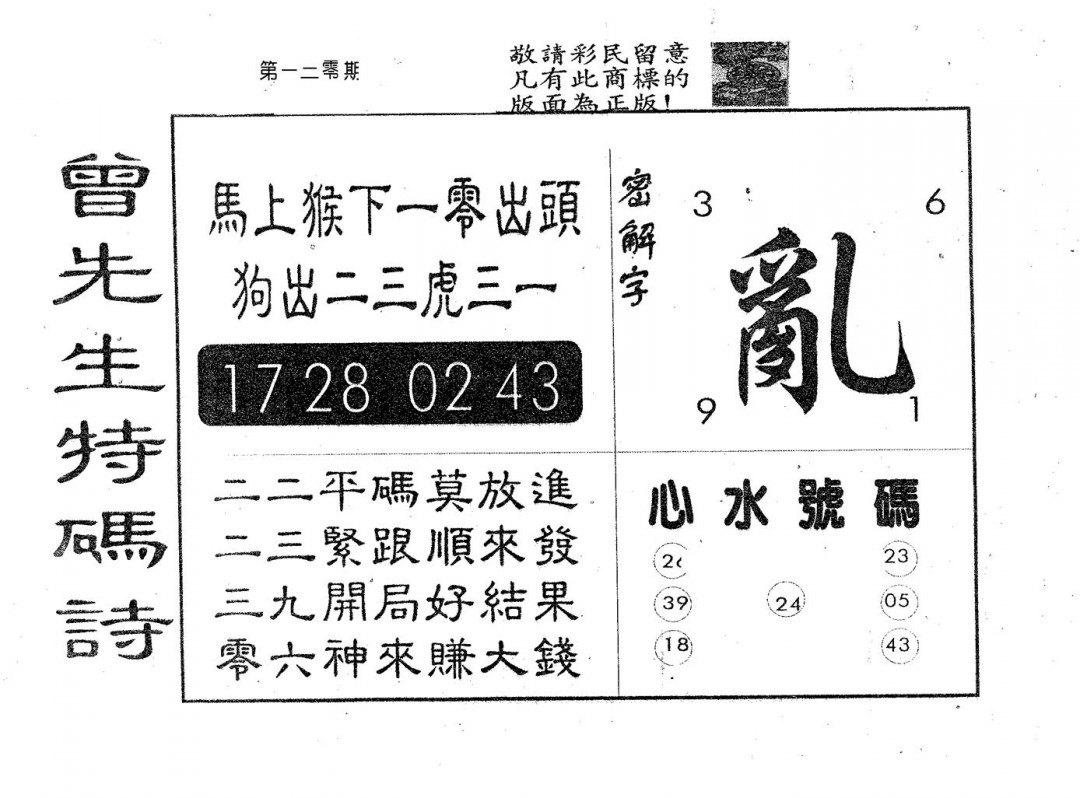 第一二零期
敬請彩民留意
凡有此商標的
版面為正版!
曾先生特碼詩
馬上猴下一零出頭
狗出二三虎三一
17 28 02 43
二二平碼莫放進
二三緊跟順來發
三九開局好結果
零六神來賺大錢
密解字
3 6
亂
9 1
心水號碼
26 23
39 24 05
18 43